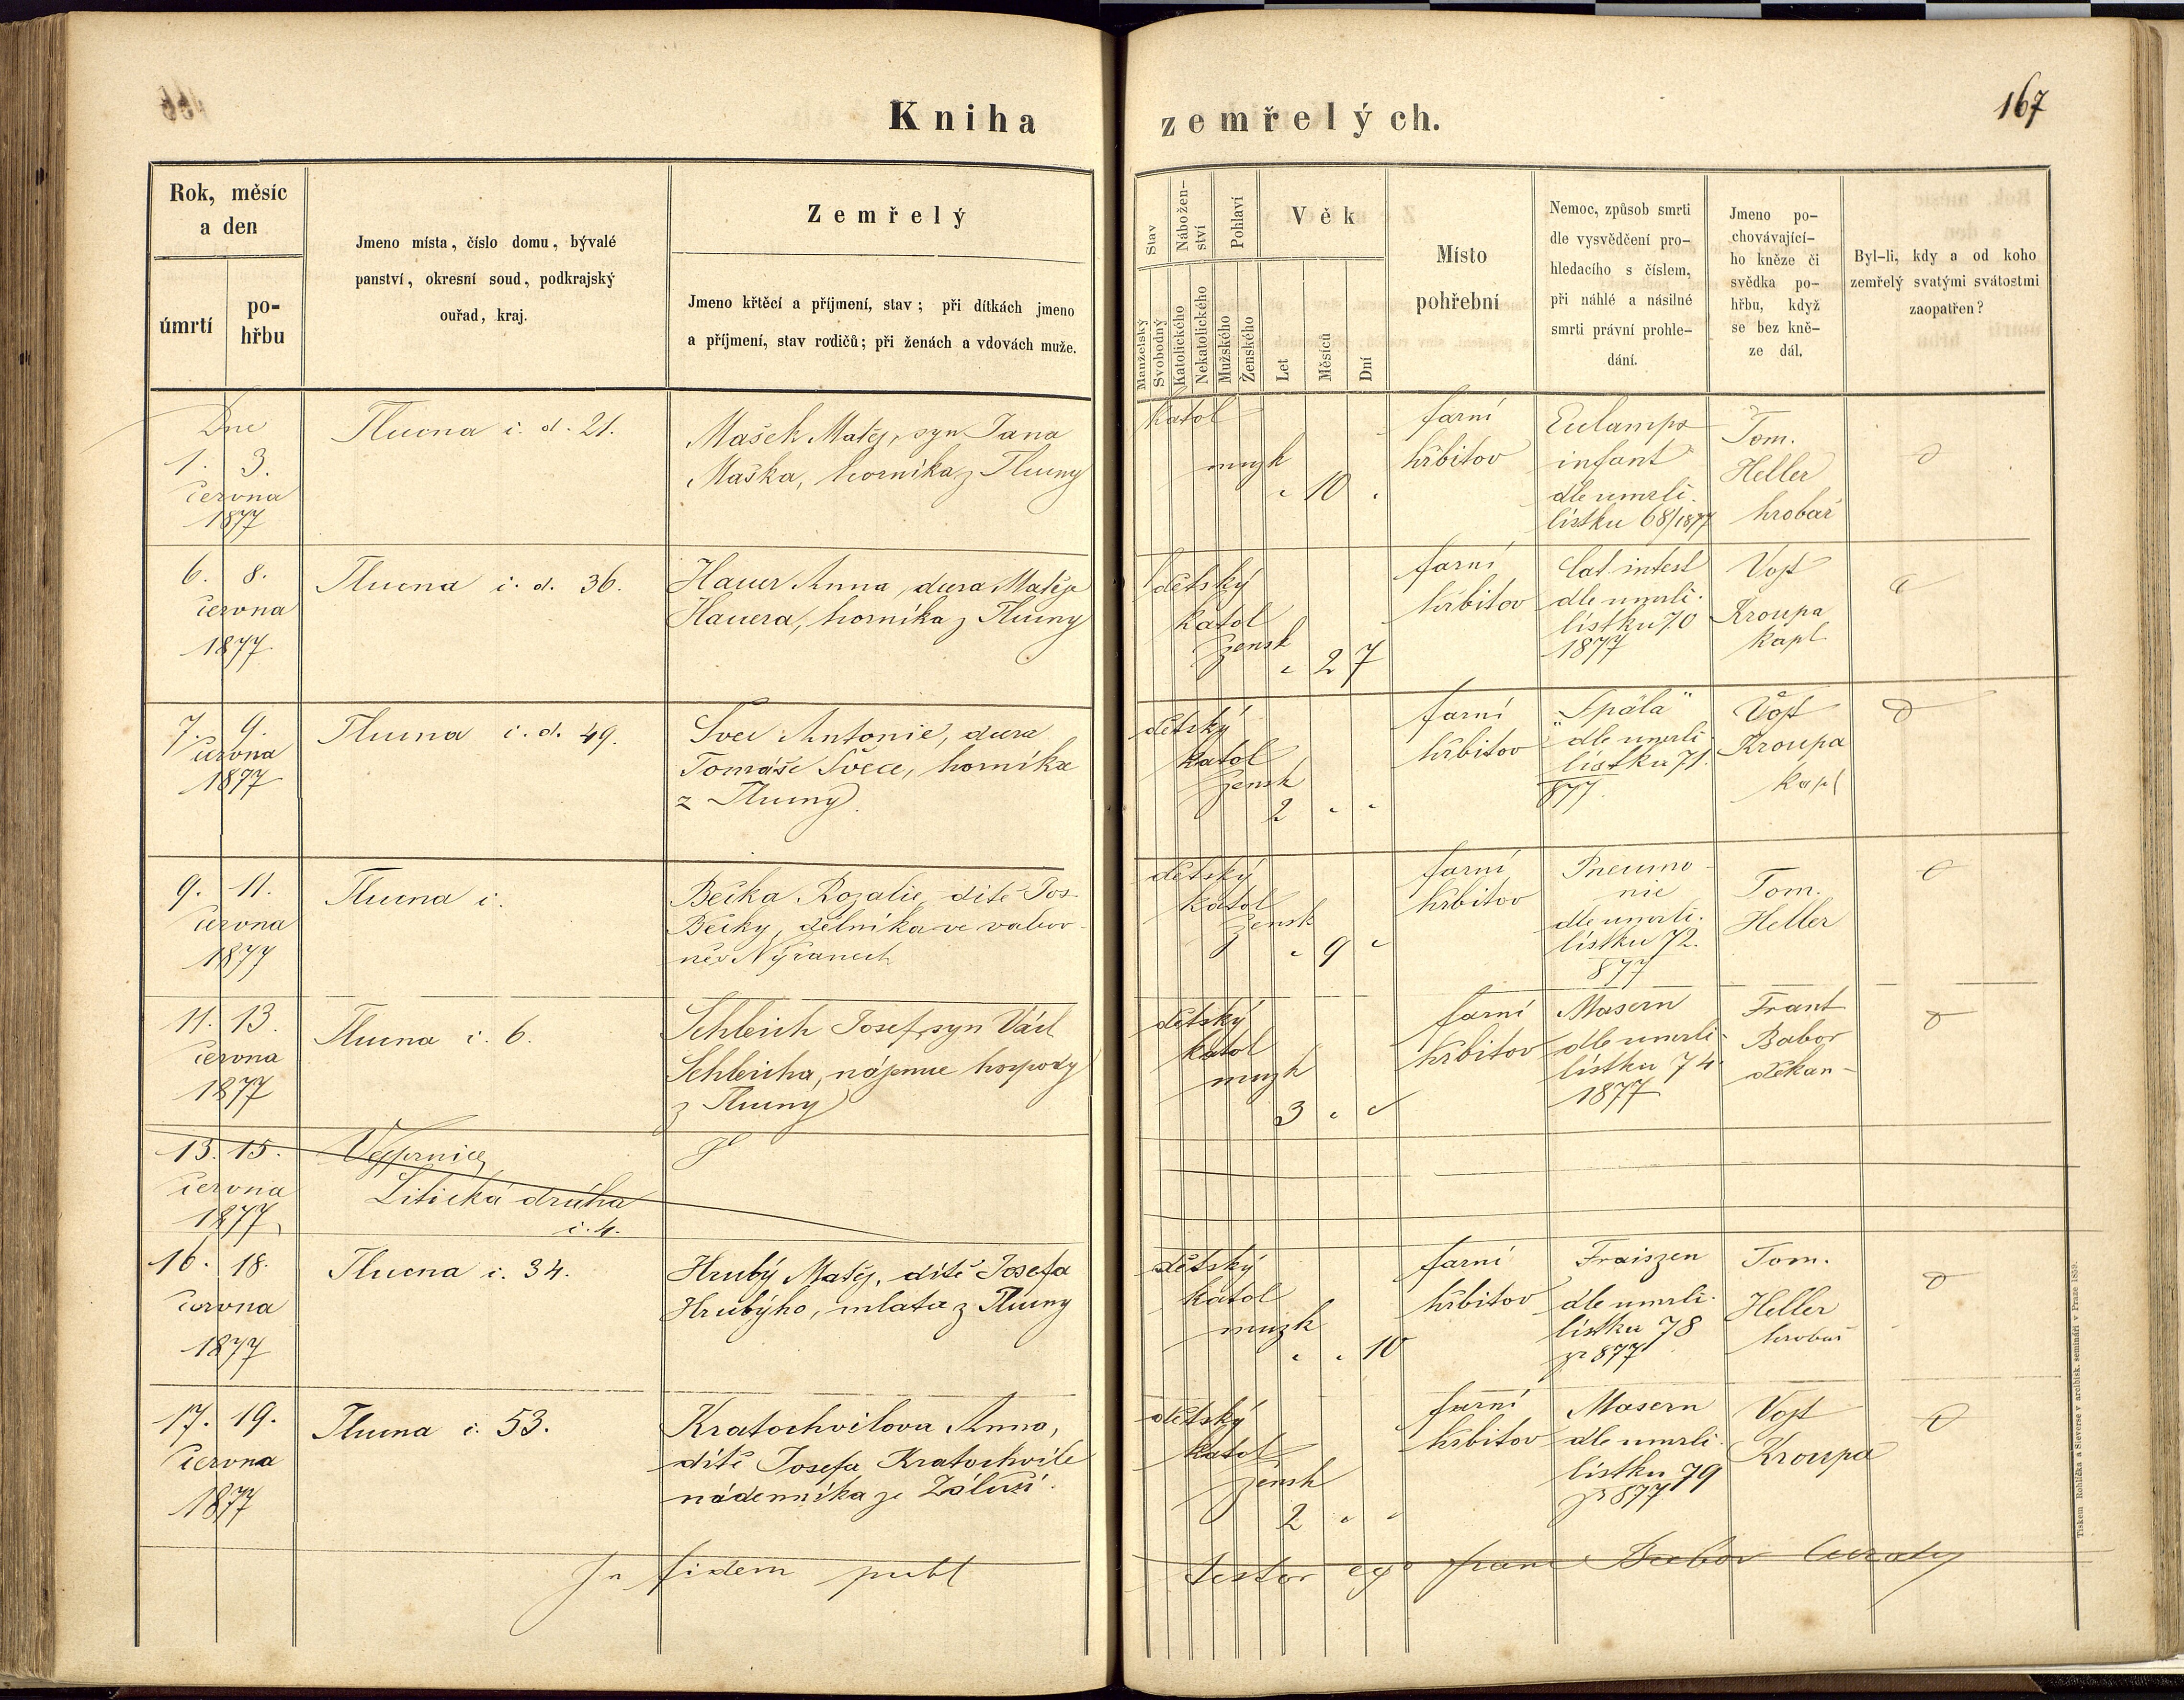 Kniha zemřelých.
167
Rok, měsíc
a den
úmrtí
po-
hřbu
Jmeno místa, číslo domu, bývalé
panství, okresní soud, podkrajský
ouřad, kraj.
Zemřelý
Jmeno křtěcí a příjmení, stav; při dítkách jmeno
a příjmení, stav rodičů; při ženách a vdovách muže.
Stav
Manželský
Svobodný
Nábožen-
ství
Katolického
Nekatolického
Pohlaví
Mužského
Ženského
Věk
Let
Měsíců
Dní
Místo
pohřební
Nemoc, způsob smrti
dle vysvědčení pro-
hledacího s číslem,
při náhlé a násilné
smrti právní prohle-
dání.
Jmeno po-
chovávající-
ho kněze či
svědka po-
hřbu, když
se bez kně-
ze dál.
Byl-li, kdy a od koho
zemřelý svatými svátostmi
zaopatřen?
Dne
1. 3.
června
1877
Tlucna č. d. 21.
Mašek Matěj, syn Jana
Maška, horníka z Tlucny
katol
mužk
" 10 "
farní
hřbitov
Eclamps
infant
dle umrlč.
lístku 68/1877
Tom.
Heller
hrobař
6. 8.
června
1877.
Tlucna č. d. 36.
Hauer Anna, dcera Matěje
Hauera, horníka z Tlucny
dětský
katol
žensk
" 2 7
farní
hřbitov
Cat. intest
dle umrlč.
lístku 70
1877
Vojt
Kroupa
kapl
7. 9.
června
1877
Tlucna č. d. 49.
Švec Antonie, dcera
Tomáše Švece, horníka
z Tlucny.
dětský
katol
žensk
2 " "
farní
hřbitov
"Spála"
dle umrlč
lístku 71.
877.
Vojt
Kroupa
kapl
9. 11.
června
1877
Tlucna č.
Bečka Rozalie, dítě Jos.
Bečky, dělníka ve
Nýřanech
dětský
katol
žensk
" 9 "
farní
hřbitov
Pneumo-
nie
dle umrlč.
lístku 72.
877
Tom.
Heller
11. 13.
června
1877
Tlucna č. 6.
Schleich Josef, syn Václ
Schleicha, nájemce hospody
z Tlucny
dětský
katol
mužk
3 " "
farní
hřbitov
Masern
dle umrlč-
lístku 74.
1877
Frant
Babor
děkan-
13. 15.
června
1877
Vejprnice
Litická dráha
č. 4.
16. 18.
června
1877
Tlucna č. 34.
Hrubý Matěj, dítě Josefa
Hrubýho, z Tlucny
dětský
katol
mužk
" " 10
farní
hřbitov
Fraiszen
dle umrlč.
lístku 78
877
Tom.
Heller
hrobař
17. 19.
června
1877
Tlucna č. 53.
Kratochvilova Anna,
dítě Josefa Kratochvile
nádenníka ze Záluží.
dětský
katol
žensk
2 " "
farní
hřbitov
Masern
dle umrlč.
lístku 79
877
Vojt
Kroupa
In fidem publ
testor ego Franc Babor
Tiskem Rohlíčka a Sieverse v arcibisk. semináři v Praze 1859.